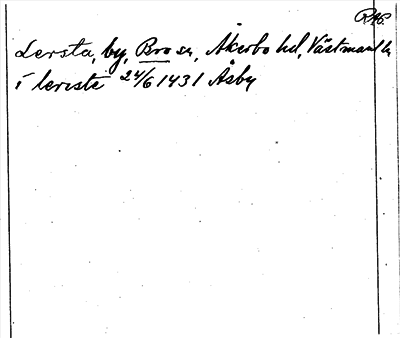 RAP.
Lersta, by, Bro sn, Åkerbo hd, Västmanl ln
i lerista 24/6 1431 Åsby